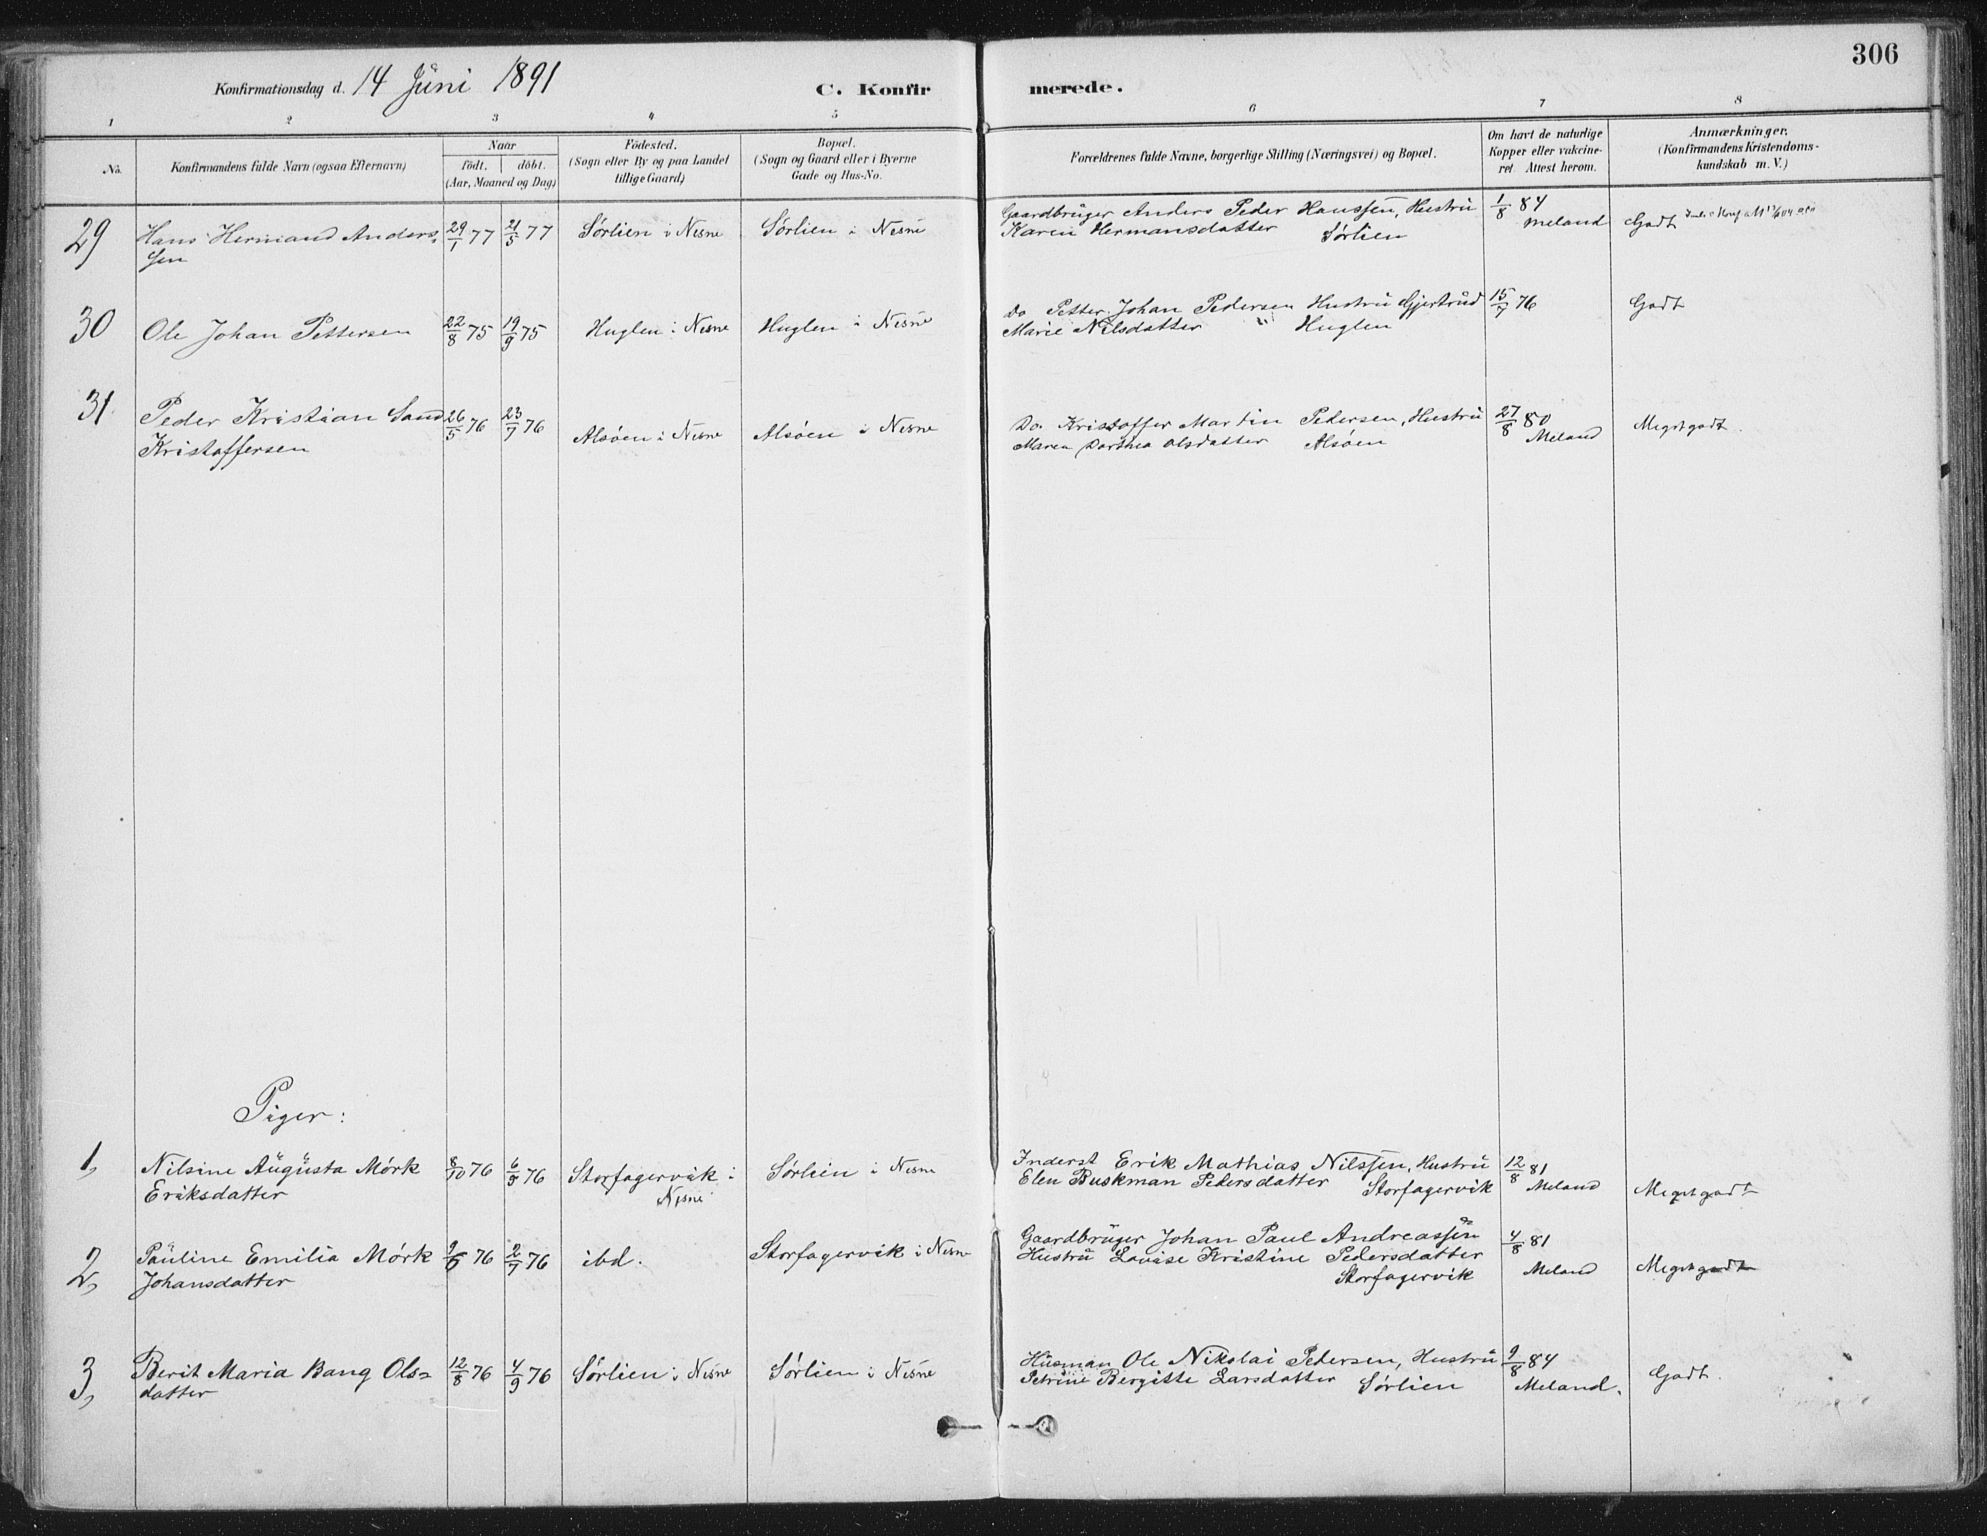 306
Konfirmationsdag d. 14 Juni 1891 C. Konfirmerede.
1 2 3 4 5 6 7 8
No. Konfirmandens fulde Navn (ogsaa Efternavn) Naar födt. döbt. (Aar, Maaned og Dag) Födested. (Sogn eller By og paa Landet tillige Gaard) Bopæl. (Sogn og Gaard eller i Byerne Gade og Hus-No. Forældrenes fulde Navne, borgerlige Stilling (Næringsvei) og Bopæl. Om havt de naturlige Kopper eller vakcineret Attest herom. Anmærkninger. (Konfirmandens Kristendomskundskab m. V.)
29 Hans Hermand Anders- 29/1 77 21/5 77 Sørlien i Nesne Sørlien i Nesne Gaardbruger Anders Peder Hanssen, Hustru 1/8 84
sen Karen Hermansdatter Sørlien Meland Godt
30 Ole Johan Pettersen 22/8 75 19/9 75 Huglen i Nesne Huglen i Nesne Do Petter Johan Pedersen Hustru Gjertrud 15/7 76 Godt
Marie Nilsdatter Huglen
31 Peder Kristian Sand 26/5 76 23/7 76 Alsøen i Nesne Alsøen i Nesne Do. Kristoffer Martin Pedersen, Hustru 27/8 80 Megetgodt.
Kristoffersen Maren Dorthea Olsdatter Alsøen Meland
Piger:
1, Nilsine Augusta Mørk 8/10 76 76 Storfagervik i Sørlien i Nesne Inderst Erik Mathias Nilssen, Hustru 12/8 81
Eriksdatter Nesne Elen Buskman Pedersdatter Storfagervik Meland Megetgodt
2, Pauline Emilia Mørk 76 2/7 76 ibd. Storfagervik i Nesne Gaardbruger Johan Paul Andreassen 4/8 81
Johansdatter Hustru Lovise Kristine Pedersdatter Meland Megetgodt
Storfagervik
3, Berit Maria Bang Ols- 12/8 76 4/9 76 Sørlien i Nesne Sørlien i Nesne Husman Ole Nikolai Pedersen, Hustru 9/8 84 Godt.
datter Petrine Bergitte Larsdatter Sørlien Meland.